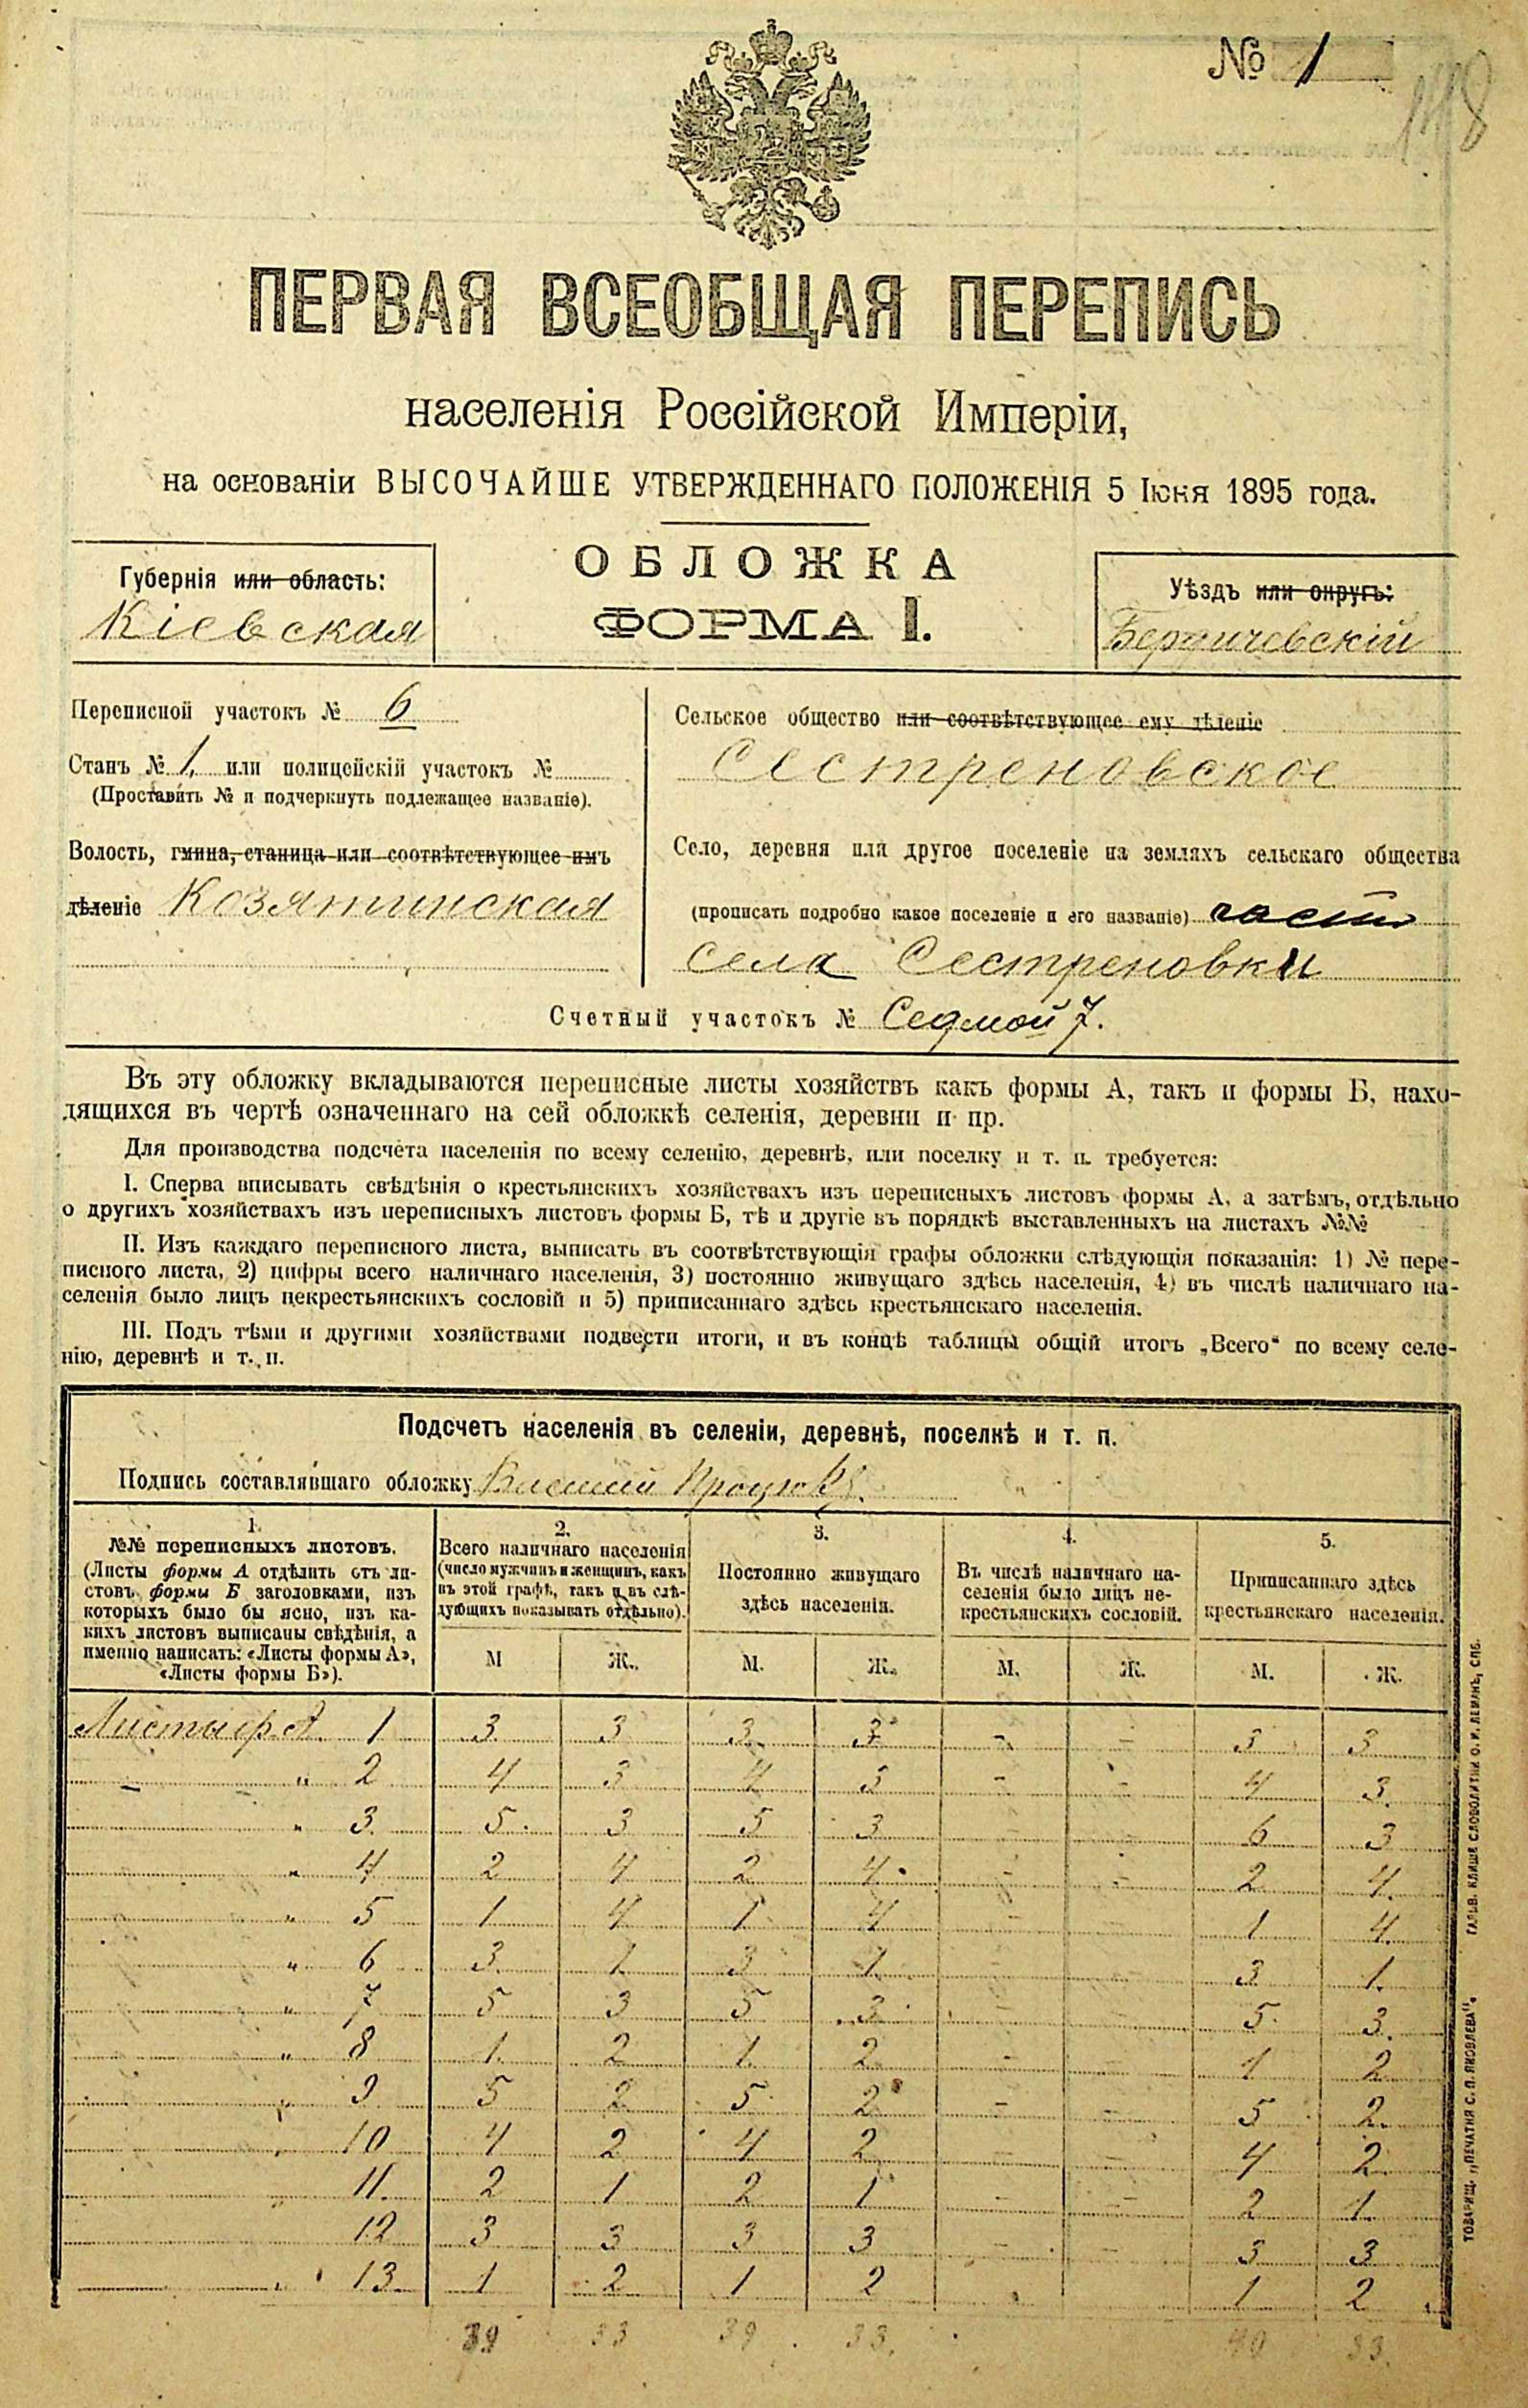 № 1
118
ПЕРВАЯ ВСЕОБЩАЯ ПЕРЕПИСЬ
населенія Россійской Имперіи,
на основаніи ВЫСОЧАЙШЕ УТВЕРЖДЕННАГО ПОЛОЖЕНІЯ 5 Іюня 1895 года.
ОБЛОЖКА
ФОРМА I.
Губернія или область:
Кіевская
Уѣздъ или округъ:
Бердичевскій
Переписной участокъ № 6
Станъ № 1, или полицейскій участокъ №
(Проставить № и подчеркнуть подлежащее названіе).
Волость, гмина, станица или соотвѣтствующее имъ
дѣленіе Козятинская
Сельское общество или соотвѣтствующее ему дѣленіе
Сестреновское
Село, деревня или другое поселеніе на земляхъ сельскаго общества
(прописать подробно какое поселеніе и его названіе) часть
села Сестреновки
Счетный участокъ № Седмой 7.
Въ эту обложку вкладываются переписные листы хозяйствъ какъ формы А, такъ и формы Б, нахо-
дящихся въ чертѣ означеннаго на сей обложкѣ селенія, деревни и пр.
Для производства подсчета населенія по всему селенію, деревнѣ, или поселку и т. п. требуется:
I. Сперва вписывать свѣдѣнія о крестьянскихъ хозяйствахъ изъ переписныхъ листовъ формы А, а затѣмъ, отдѣльно
о другихъ хозяйствахъ изъ переписныхъ листовъ формы Б, тѣ и другіе въ порядкѣ выставленныхъ на листахъ №№
II. Изъ каждаго переписного листа, выписать въ соотвѣтствующія графы обложки слѣдующія показанія: 1) № пере-
писного листа, 2) цифры всего наличнаго населенія, 3) постоянно живущаго здѣсь населенія, 4) въ числѣ наличнаго на-
селенія было лицъ некрестьянскихъ сословій и 5) приписаннаго здѣсь крестьянскаго населенія.
III. Подъ тѣми и другими хозяйствами подвести итоги, и въ концѣ таблицы общій итогъ „Всего“ по всему селе-
нію, деревнѣ и т. п.
Подсчетъ населенія въ селеніи, деревнѣ, поселкѣ и т. п.
Подпись составлявшаго обложку
1.
№№ переписныхъ листовъ.
(Листы формы А отдѣлить отъ ли-
стовъ формы Б заголовками, изъ
которыхъ было бы ясно, изъ ка-
кихъ листовъ выписаны свѣдѣнія, а
именно написать: «Листы формы А»,
«Листы формы Б»).
2.
Всего наличнаго населенія
(число мужчинъ и женщинъ, какъ
въ этой графѣ, такъ и въ слѣ-
дующихъ показывать отдѣльно).
М Ж.
3.
Постоянно живущаго
здѣсь населенія.
М. Ж.
4.
Въ числѣ наличнаго на-
селенія было лицъ не-
крестьянскихъ сословій.
М. Ж.
5.
Приписаннаго здѣсь
крестьянскаго населенія.
М. Ж.
Листы ф. А. 1 3 3 3 3 - - 3 3
— " 2 4 3 4 3 - - 4 3
" 3 5 3 5 3 - - 6 3
" 4 2 4 2 4 - - 2 4
" 5 1 4 1 4 - - 1 4
" 6 3 1 3 1 - - 3 1
" 7 5 3 5 3 - - 5 3
" 8 1 2 1 2 - - 1 2
" 9 5 2 5 2 - - 5 2
" 10 4 2 4 2 - - 4 2
" 11 2 1 2 1 - - 2 1
" 12 3 3 3 3 - - 3 3
" 13 1 2 1 2 1 2
39 33 39 33 40 33
ТОВАРИЩ. „ПЕЧАТНЯ С. П. ЯКОВЛЕВА“. ГАЛЬВ. КЛИШЕ СЛОВОЛИТНИ О. И. ЛЕМАНЪ, СПБ.